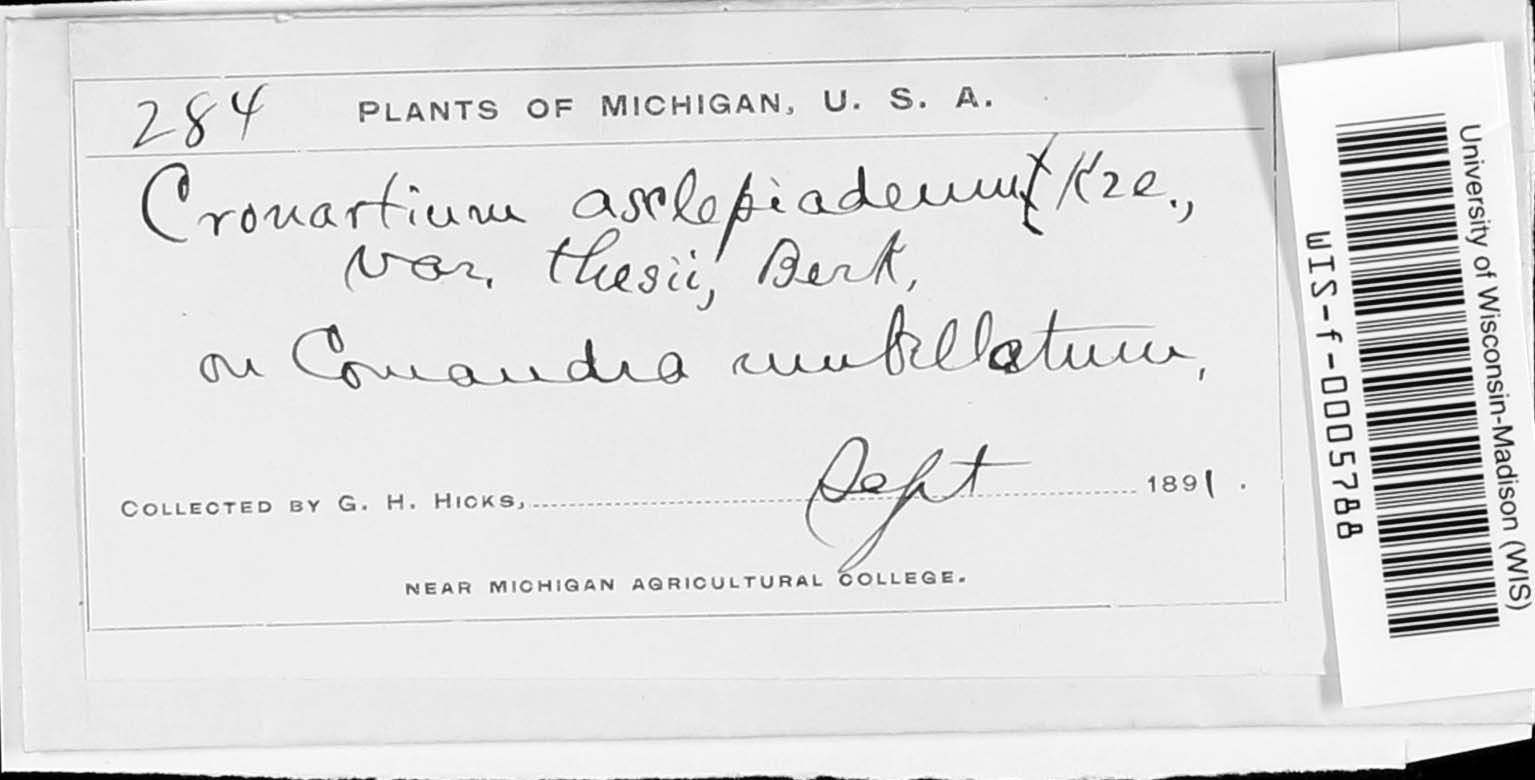 284 PLANTS OF MICHIGAN, U. S. A.
Cronartium asclepiadeum Kze.,
var. thesii, Berk,
on Comandra umbellatum,
COLLECTED BY G. H. HICKS, Sept 1891.
NEAR MICHIGAN AGRICULTURAL COLLEGE.
University of Wisconsin-Madison (WIS)
WIS-f-0005788